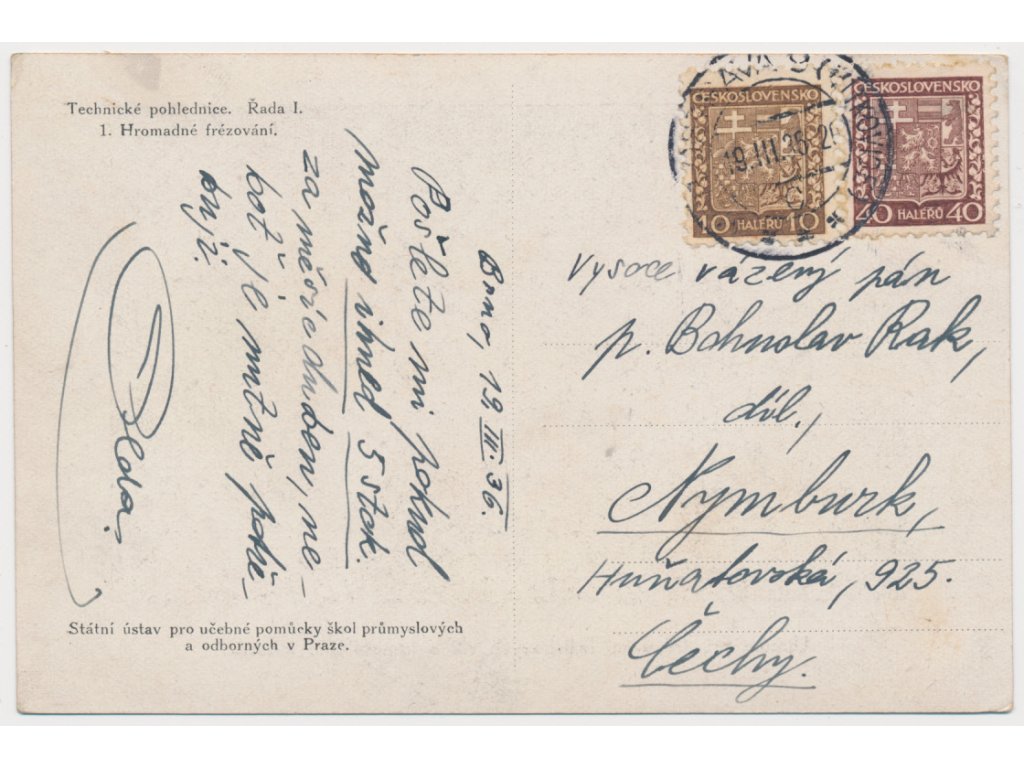 Technické pohlednice. Řada I.
1. Hromadné frézování.
Brno, 19. III. 36.
Pošlete mi pokud
možno ihned 5 stok.
za měsíc duben, ne-
boť je nutně potře-
buji.
ČESKOSLOVENSKO
10 HALÉŘŮ 10
ČESKOSLOVENSKO
40 HALÉŘŮ 40
19. III. 36
Vysoce vážený pán
p. Bohuslav Rak,
Nymburk,
Huňatovská, 925.
Čechy.
Státní ústav pro učebné pomůcky škol průmyslových
a odborných v Praze.